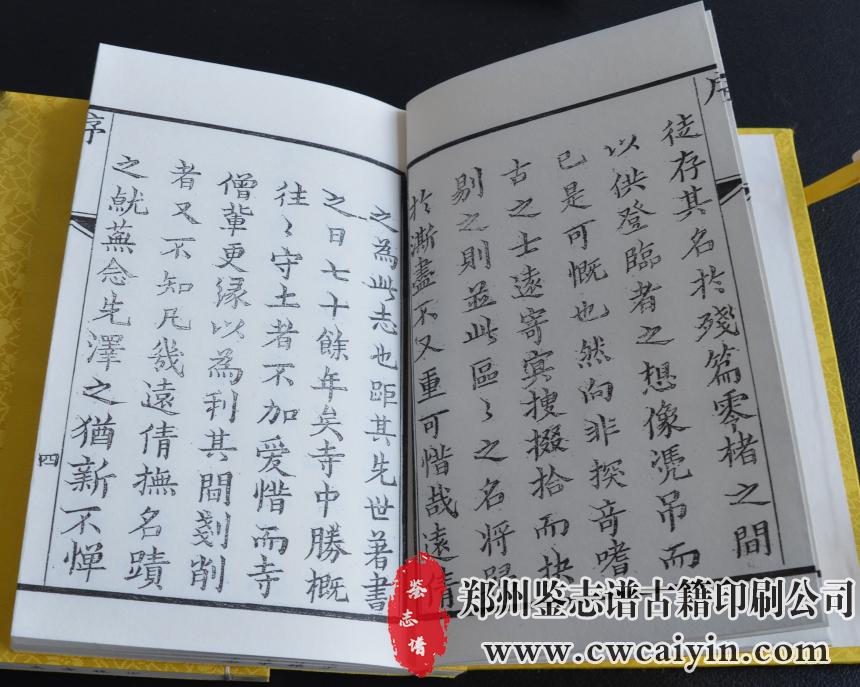 徒存其名於殘篇零楮之間
以供登臨者之想像憑吊而
已是可慨也然向非探奇嗜
古之士遠寄冥搜掇拾而抉
剔之則並此區〻之名將歸
於澌盡不又重可惜哉遠倩
之為此志也距其先世著書
之日七十餘年矣寺中勝概
往〻守土者不加愛惜而寺
僧輩更緣以為利其間剗削
者又不知凡幾遠倩撫名蹟
之就蕪念先澤之猶新不憚
序
四
序
鉴志谱
郑州鉴志谱古籍印刷公司
www.cwcaiyin.com